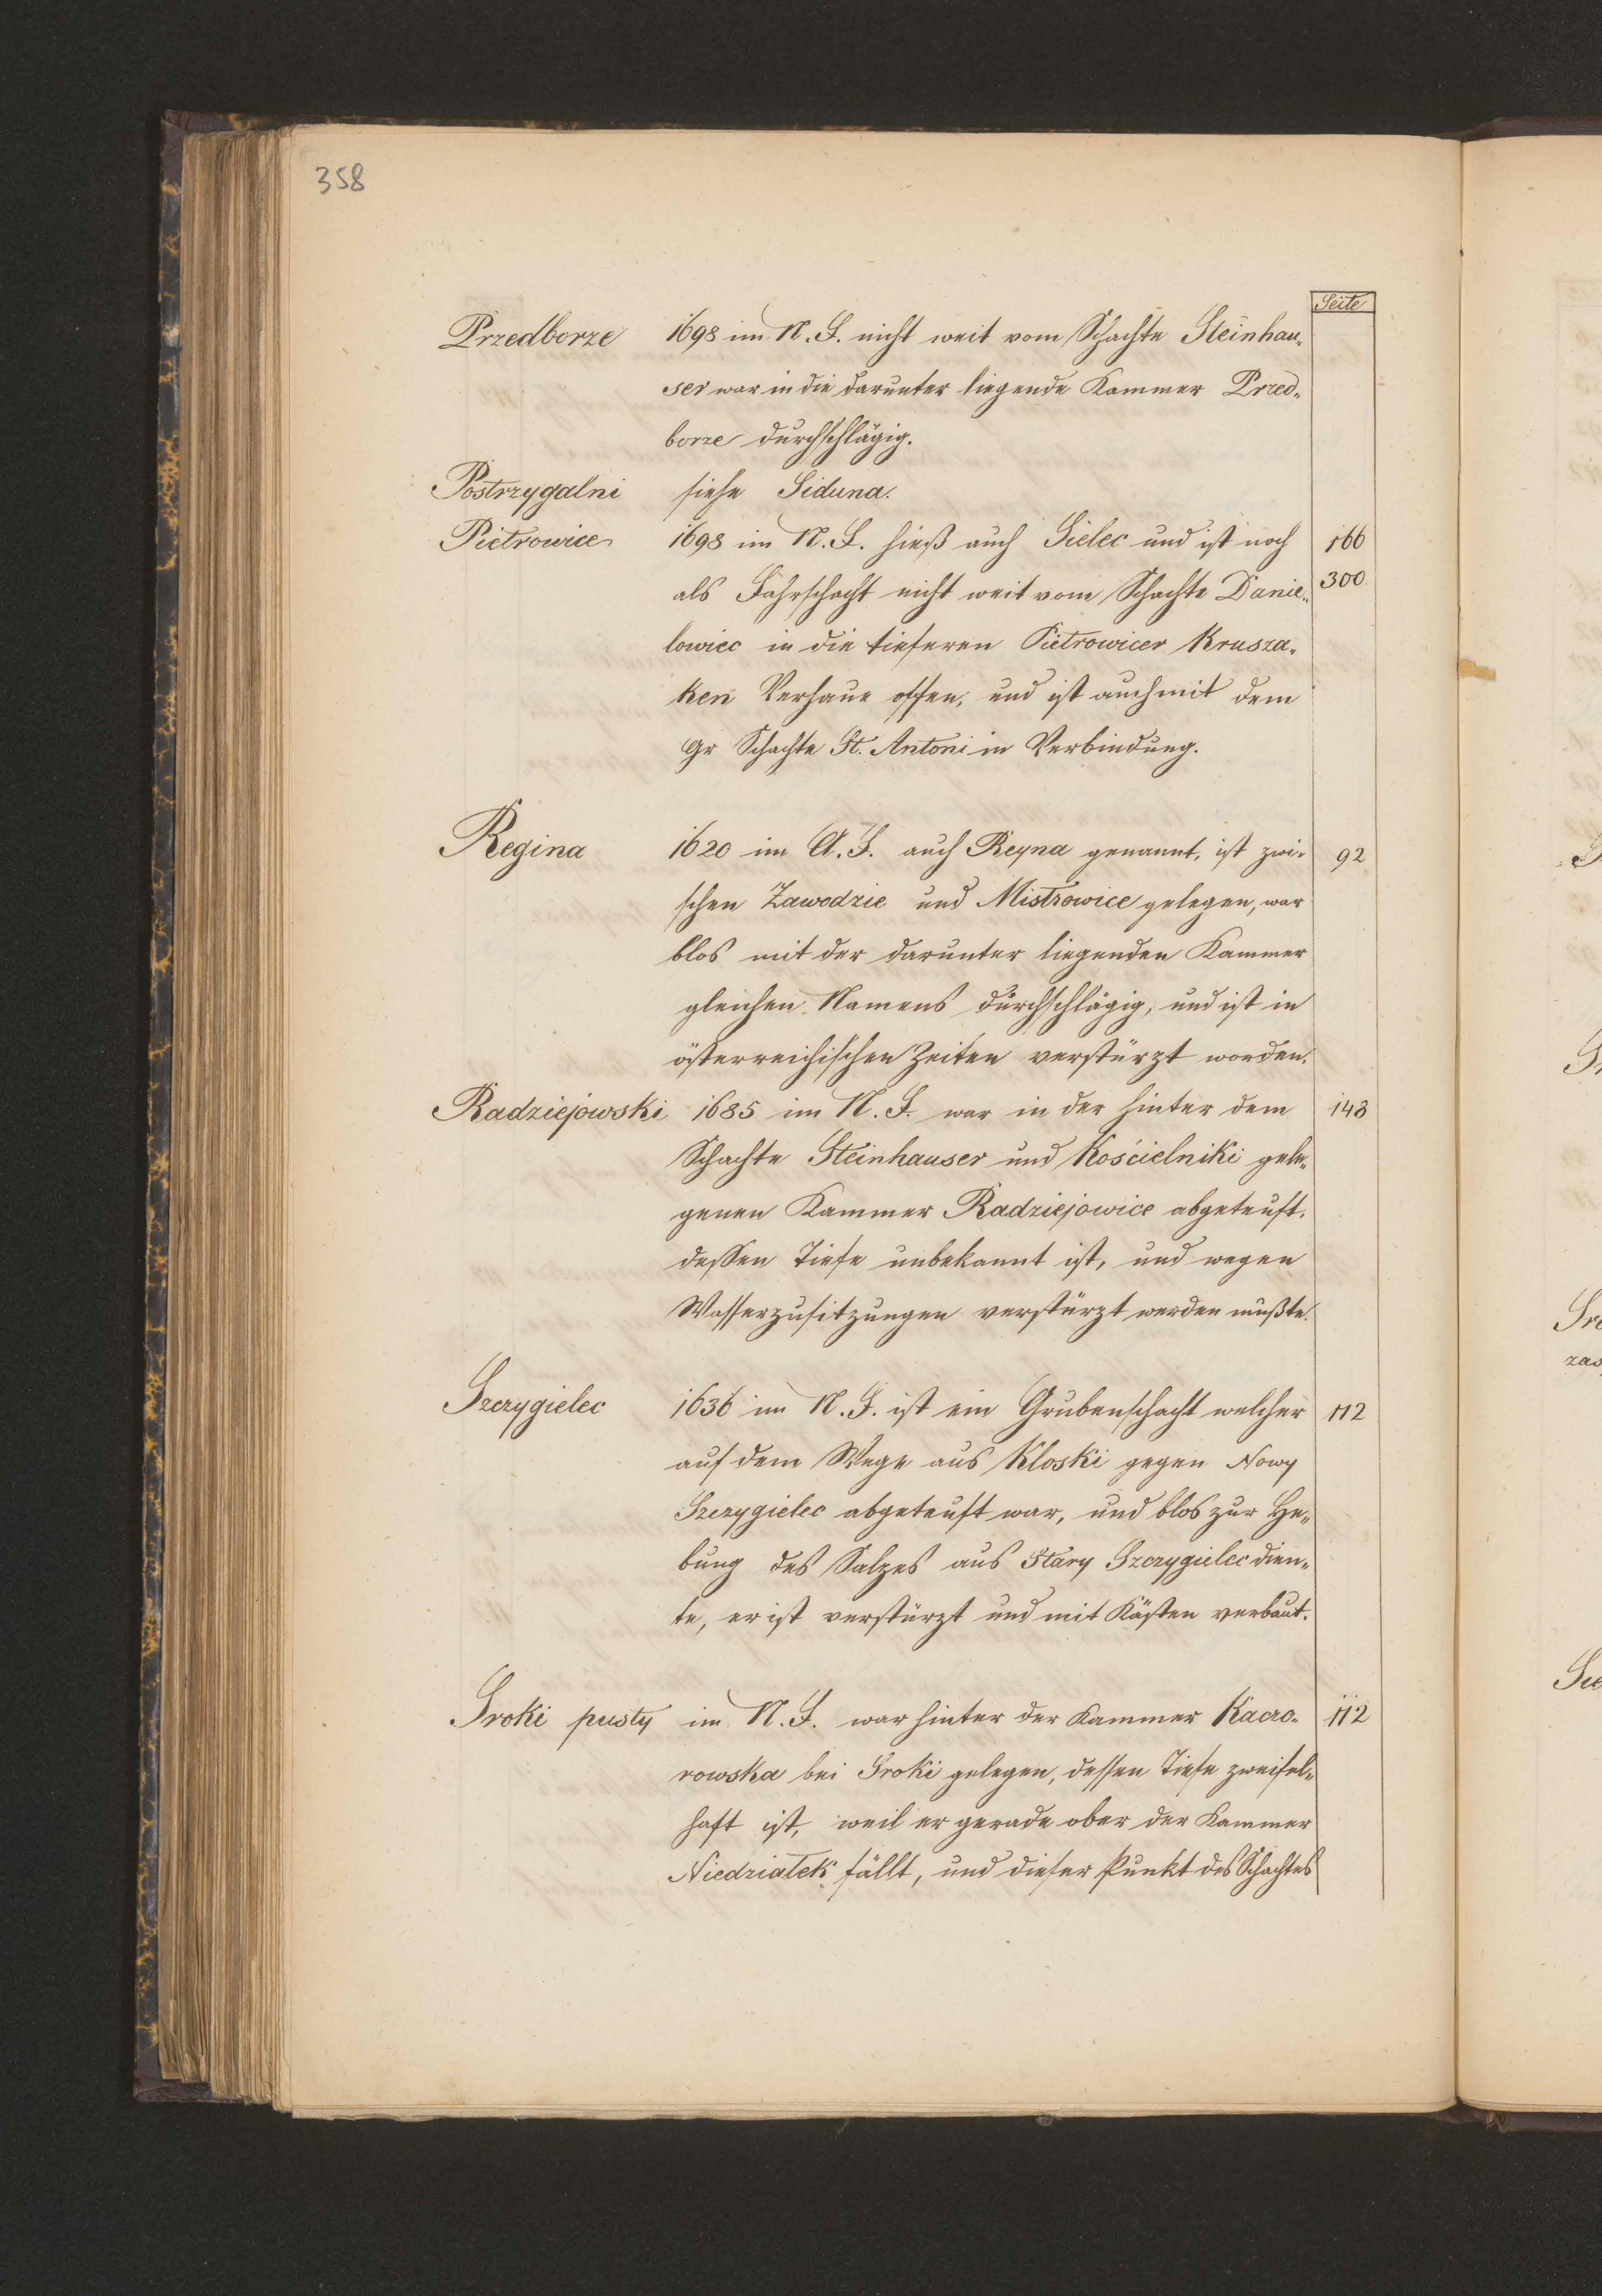 358
Seite
Przedborze 1698 im N. F. nicht weit vom Schachte Steinhau-
ser war in die darunter liegende Kammer Przed-
borze durchschlägig.
Postrzygalni siehe Siduna.
Pietrowice 1698 im N. F. hieß auch Sielec und ist noch 166
als Fahrschacht nicht weit vom Schachte Danie- 300
lowiec in die tieferen Pietrowicer Krusza-
ken Verhaue offen, und ist auch mit dem
Gr Schachte St. Antoni in Verbindung.
Regina 1620 im A. F. auch Reyna genannt, ist zwi- 92
schen Zawodzie und Mistrowice gelegen, war
blos mit der darunter liegenden Kammer
gleichen Namens durchschlägig, und ist in
österreichischen Zeiten verstürzt worden.
Radziejowski 1685 im N. F. war in der hinter dem 148
Schachte Steinhauser und Kościelniki gele-
genen Kammer Radziejowice abgeteuft,
dessen Tiefe unbekannt ist, und wegen
Wasserzusitzungen verstürzt werden mußte.
Szczygielec 1636 im N. F. ist ein Grubenschacht welcher 112
auf dem Wege aus Kloski gegen Nowy
Szczygielec abgeteuft war, und blos zur He-
bung des Salzes aus Stary Szczygielec dien-
te, er ist verstürzt und mit Kästen verbaut.
Sroki pusty im N. F. war hinter der Kammer Kaczo- 112
rowska bei Sroki gelegen, dessen Tiefe zweifel-
haft ist, weil er gerade ober der Kammer
Niedzialek fällt, und dieser Punkt des Schachtes